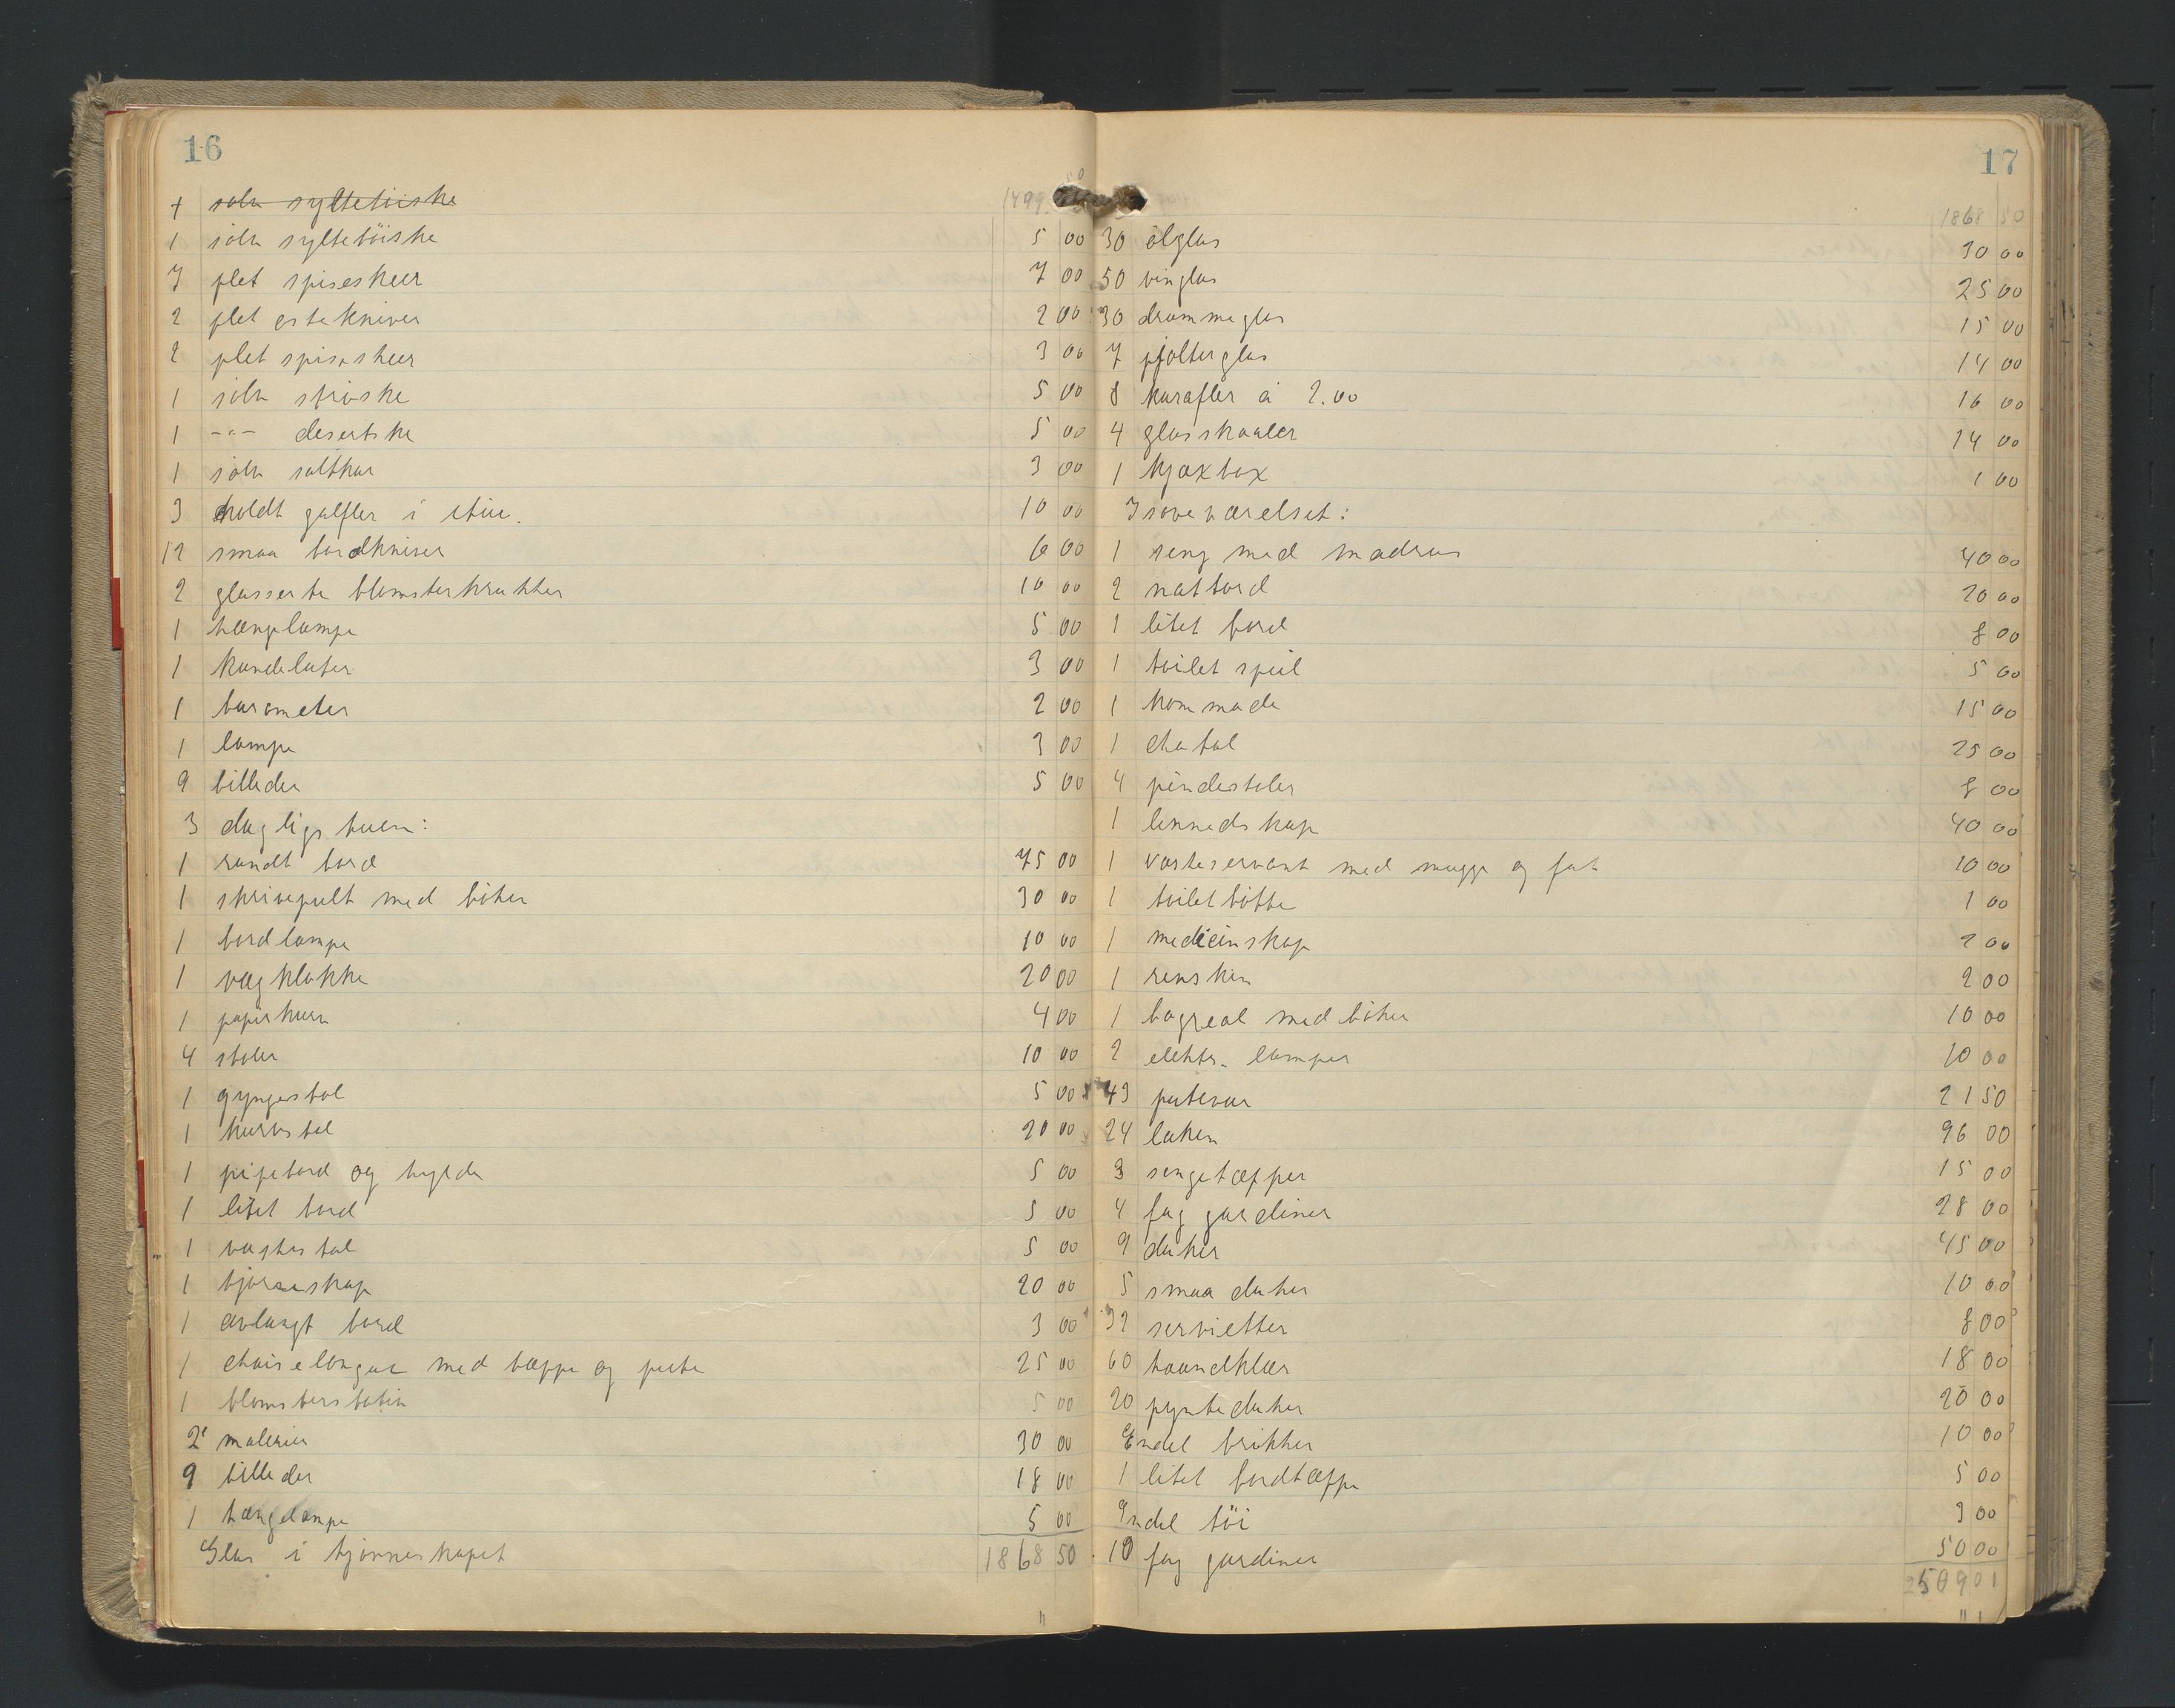 16
1 sølv syltetøiske 1499 50
1 sølv syltetöiske 5 00
7 plet spiseskeer 7 00
2 plet ostekniver 2 00
2 plet spiseskeer 3 00
1 sølv strøske 5 00
1 -"- desertske 5 00
1 sølv saltkar 3 00
3 holdt galfler i etui. 10 00
12 smaa bordkniver 6 00
2 glasserte blomsterkrukker 10 00
1 hænglampe 5 00
1 kandelater 3 00
1 barometer 2 00
1 lampe 3 00
9 billeder 5 00
I dagligstuen:
1 rundt bord 75 00
1 skrivepult med böker 30 00
1 bordlampe 10 00
1 vægklokke 20 00
1 papirkurv 4 00
4 stoler 10 00
1 gyngestol 5 00
1 kurvstol 20 00
1 pipebord og hylde 5 00
1 litet bord 5 00
1 vagtestol 5 00
1 hjørneskap 20 00
1 avlangt bord 3 00
1 chaiselongue med tæppe og pute 25 00
1 blomsterstativ 5 00
2 malerier 30 00
9 billeder 18 00
1 hængelampe 5 00
Glas i hjørneskapet 1868 50
17
1868 50
30 ølglas 30 00
50 vinglas 25 00
30 drammeglas 15 00
7 pjolterglas 14 00
8 karafler à 2.00 16 00
4 glasskaaler 14 00
1 kjøxbox 1 00
I soveværelset:
1 seng med madras 40 00
2 natbord 20 00
1 litet bord 8 00
1 toilet speil 5 00
1 kommode 15 00
1 chatol 25 00
4 pindestoler 8 00
1 linnedskap 40 00
1 vaskeservant med mugge og fat 10 00
1 toiletbøtte 1 00
1 medicinskap 2 00
1 renskin 2 00
1 bogreol med böker 10 00
2 elektr. lamper 10 00
43 putevar 21 50
24 laken 96 00
3 sengetæpper 15 00
4 fag gardiner 28 00
9 duker 45 00
5 smaa duker 10 00
32 servietter 8 00
60 haandklær 18 00
20 pynteduker 20 00
Endel brikker 10 00
1 litet bordtæppe 5 00
Endel töi 3 00
10 fag gardiner 50 00